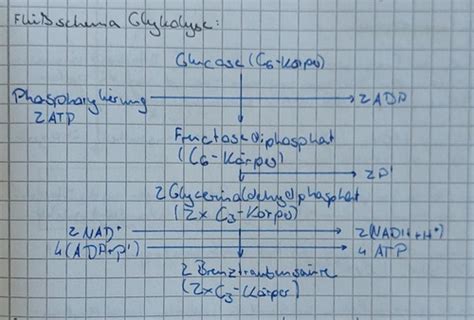 Fließschema Glykolyse:
Glucose (C6-Körper)
Phosphorylierung
2 ATP
2 ADP
Fructosediphosphat
(C6-Körper)
2 P'
2 Glycerinaldehydphosphat
(2x C3-Körper)
2 NAD+
2(NADH+H+)
4(ADP+P')
4 ATP
2 Brenztraubensäure
(2x C3-Körper)